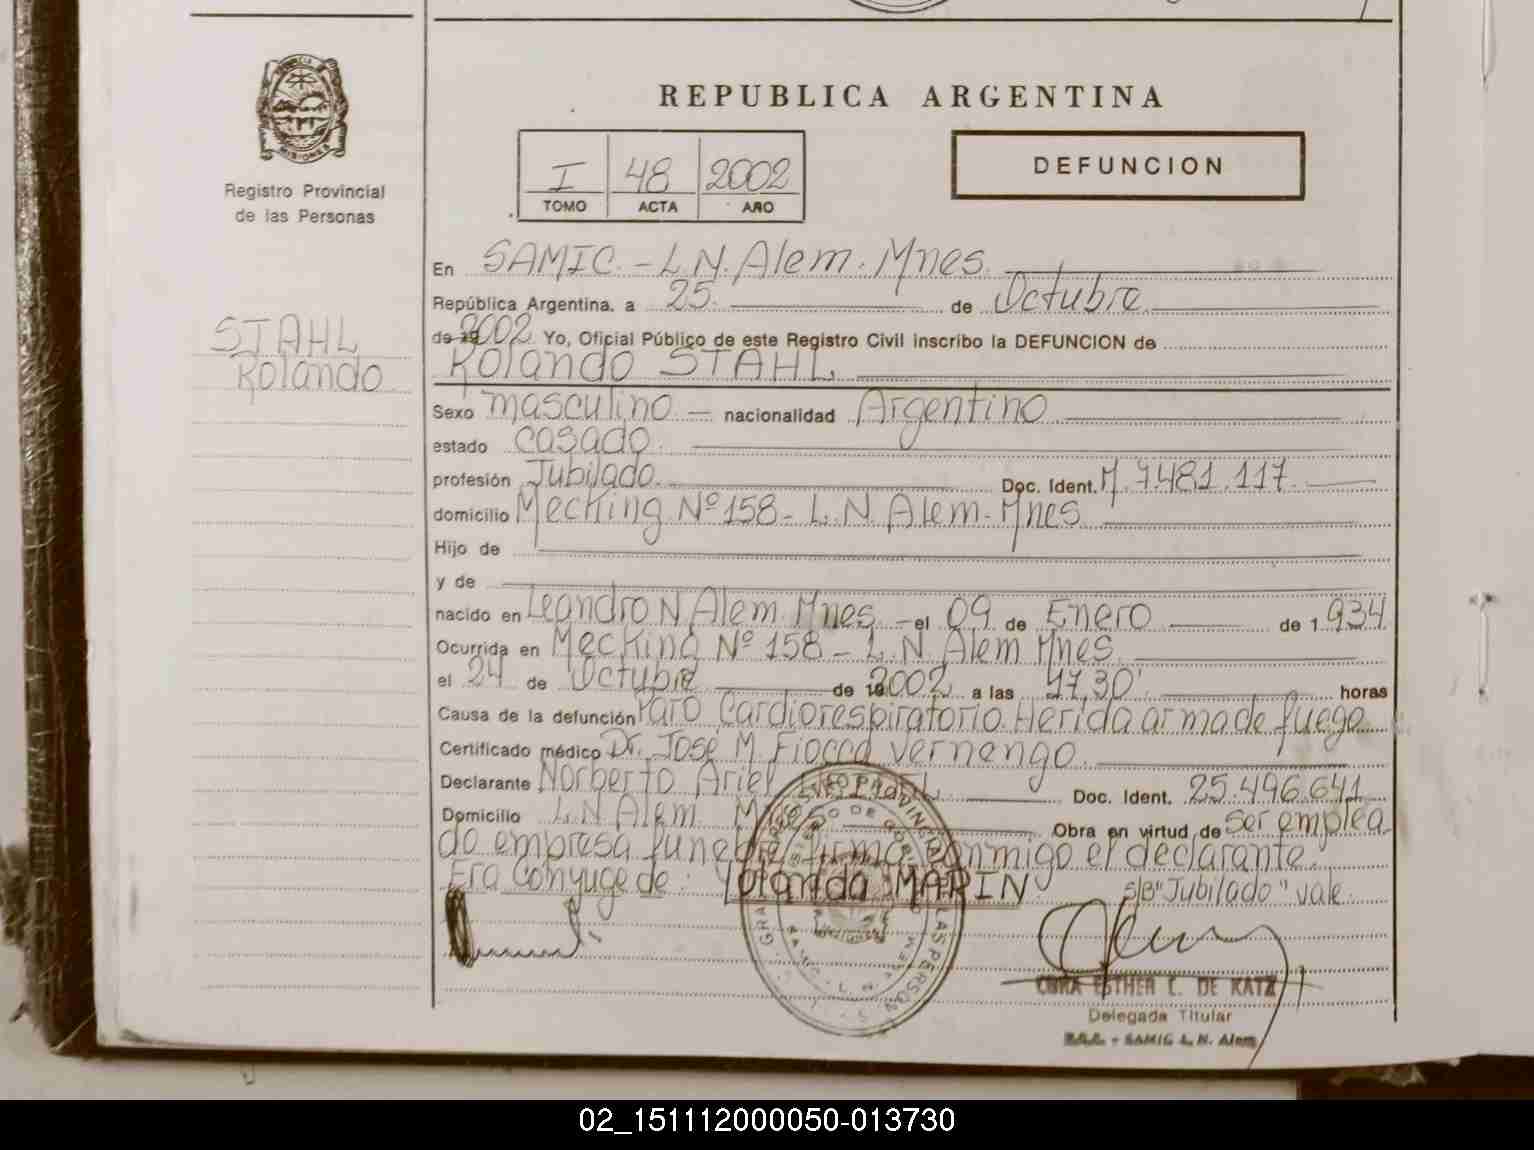 PROVINCIA DE
MISIONES
Registro Provincial
de las Personas
STAHL
Rolando
REPUBLICA ARGENTINA
I 48 2002
TOMO ACTA AÑO
DEFUNCION
En SAMIC.-L.N.Alem.Mnes.
República Argentina, a 25. de Octubre
de 19 2002 Yo, Oficial Público de este Registro Civil inscribo la DEFUNCION de
Rolando STAHL
Sexo masculino - nacionalidad Argentino
estado casado.
profesión Jubilado. Doc. Ident. M. 7.481.117.
domicilio Mecking Nº 158- L.N. Alem- Mnes
Hijo de
y de
nacido en Leandro N Alem Mnes - el 09 de Enero de 1 934
Ocurrida en Mecking Nº 158- L.N. Alem Mnes.
el 24 de Octubre de 19 2002 a las 17,30' horas
Causa de la defunción Paro Cardiorespiratorio. Herida arma de fuego
Certificado médico Dr. José M. Fiocca Vernengo.
Declarante Norberto Ariel Doc. Ident. 25.496.641
Domicilio L.N Alem. Obra en virtud de ser emplea
do empresa funebre, firma conmigo el declarante.
Era Conyuge de: Yolanda MARIN s/B "Jubilado" vale.
OBRA ESTHER C. DE KATZ
Delegada Titular
SAMIC L. N. Alem
02_151112000050-013730